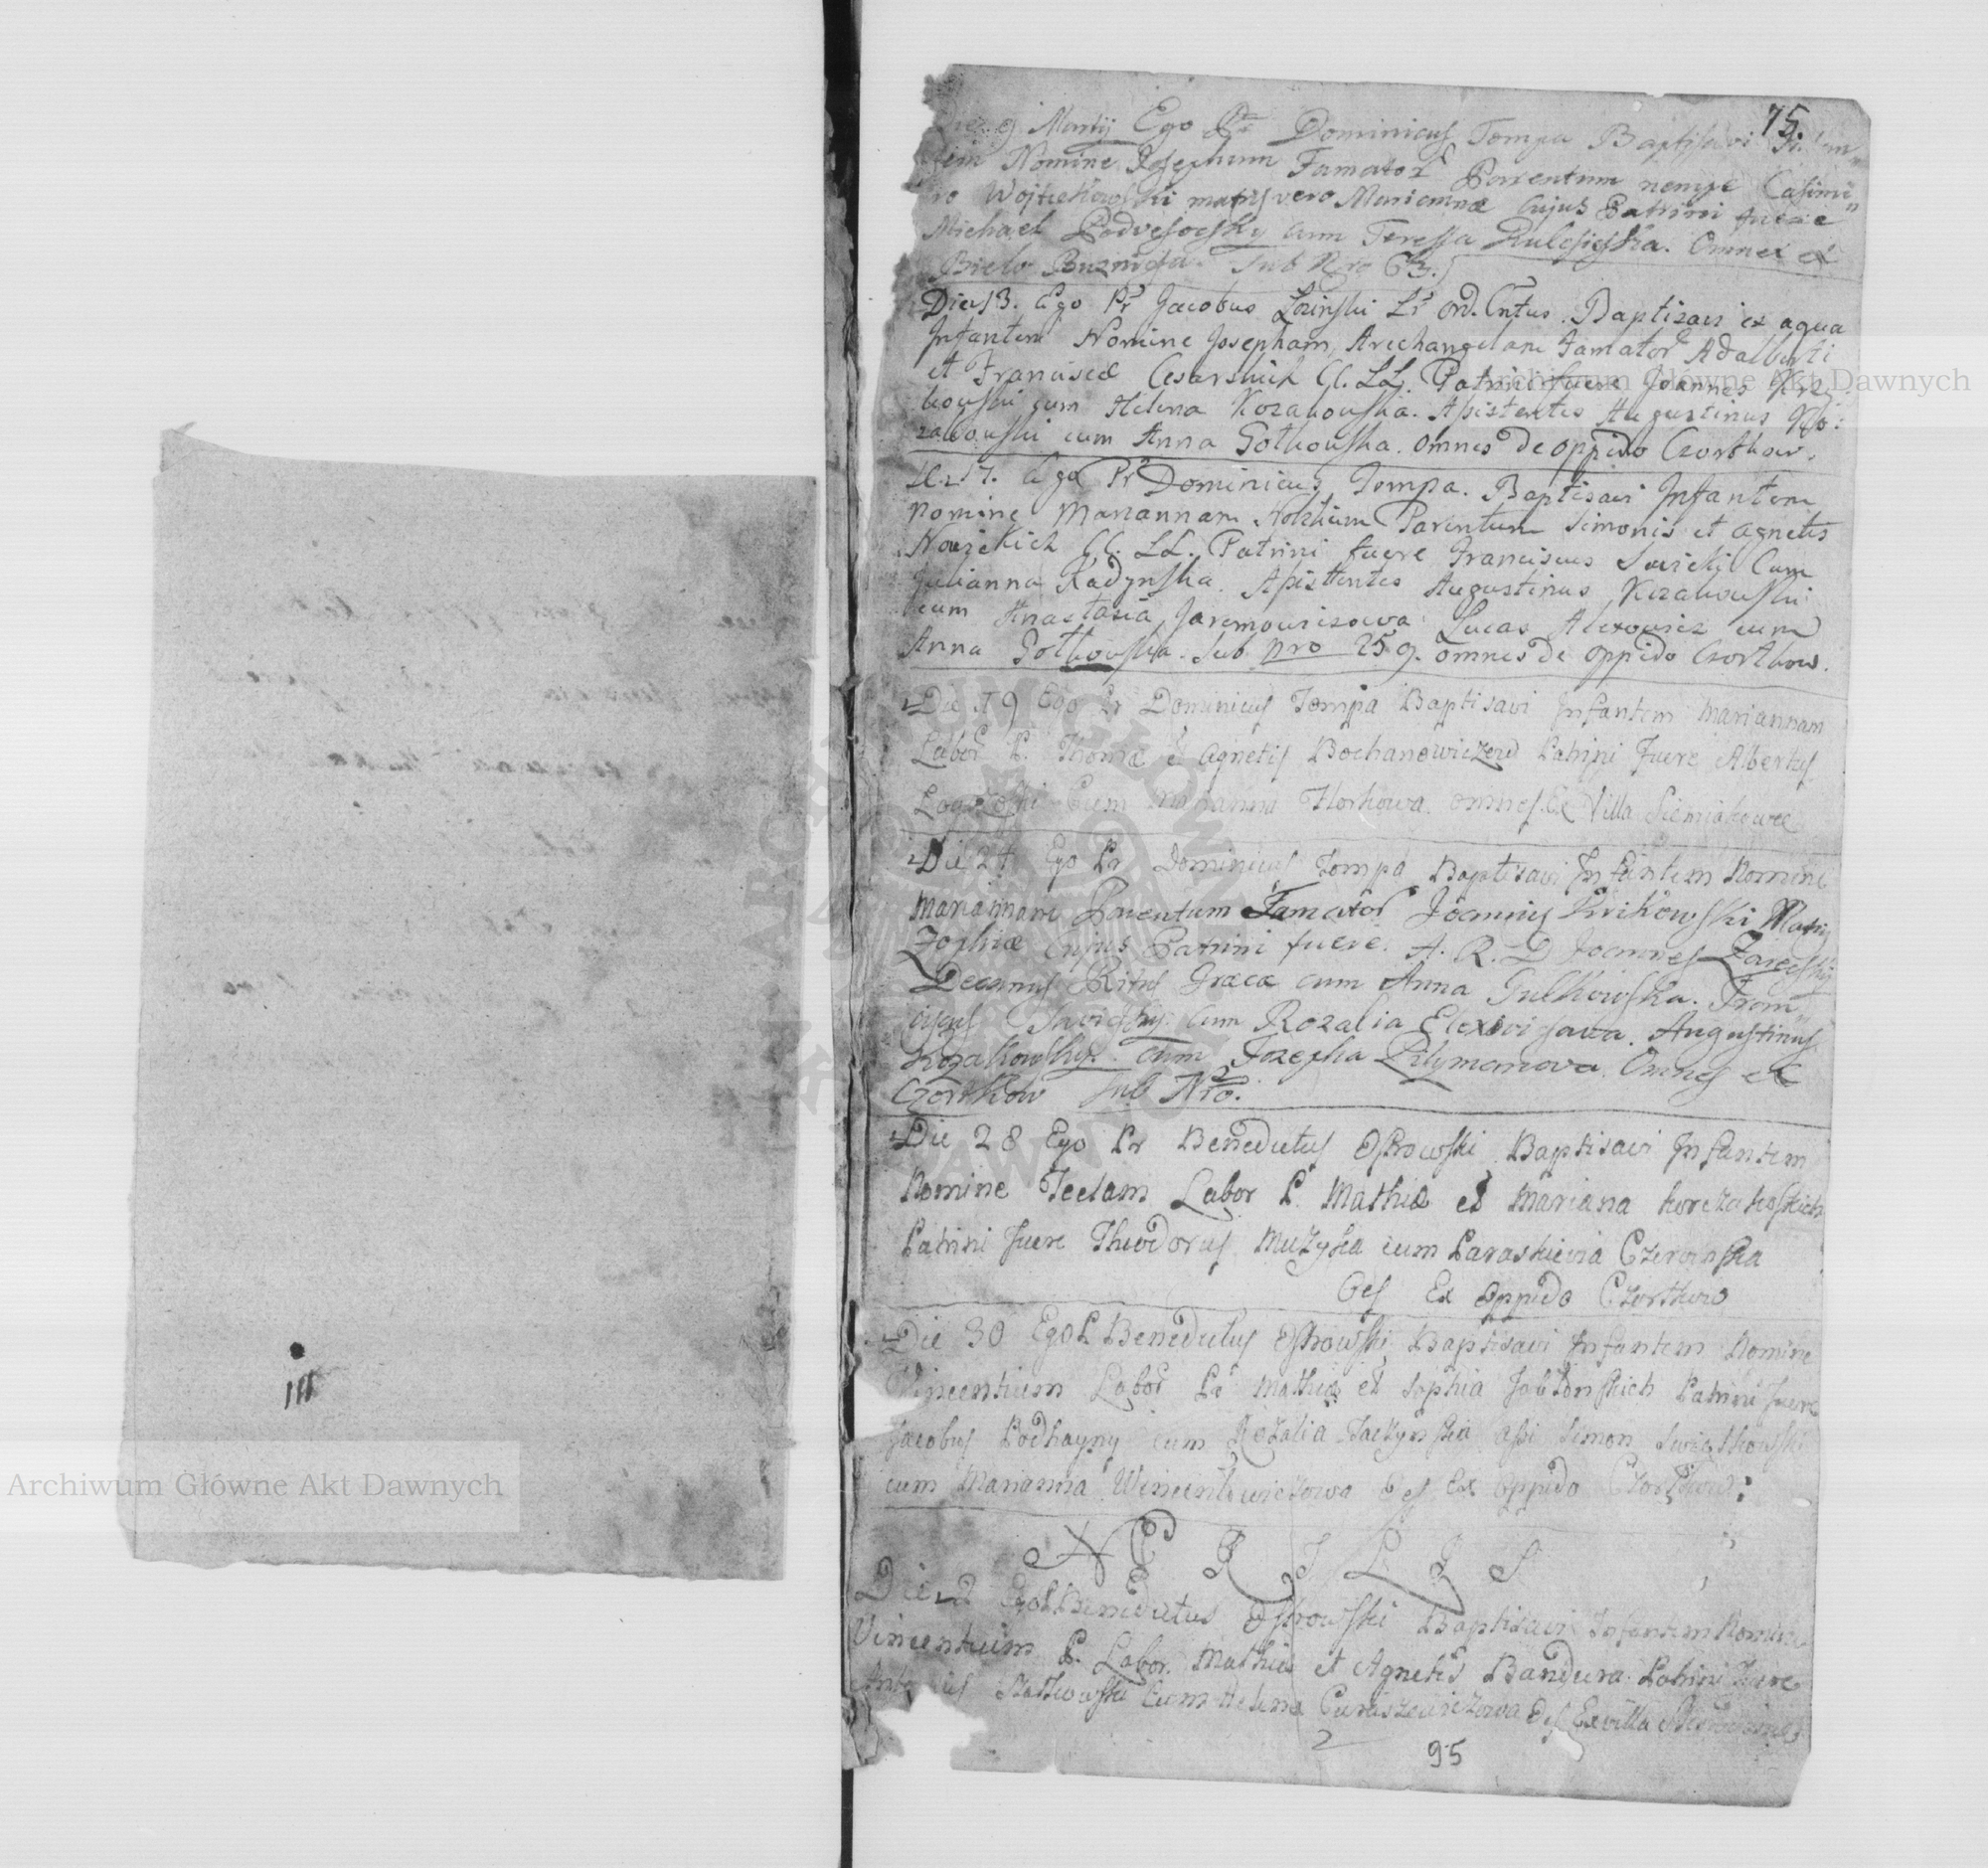 75.
Die 9 Martij Ego Pr Dominicus Tompa Baptisavi
Nomine Josephum Famator Parentum nempe Casimi
ro Wojtiekowski matris vero Mariannæ Cujus Patrini fuere
Michael Podvesocky cum Teressa Omnes ex
Sub Nro 63.
Die 13. Ego Pr Jacobus Lozinski Lr ord. Cntus. Baptisavi ex aqua
Infantem Nomine Josepham, Archangelam Famator Adalberti
et Franciscæ Cesarskich CC. LL. Patrini fuere Joannes Krzy
kowski cum Helena Kozakowska. Assistentes Augustinus Ko:
zakowski cum Anna Gotkowska. omnes de oppido Czortkow.
17. Ego Pr Dominicus Tompa. Baptisavi Infantem
nomine Mariannam Parentum Simonis et Agnetis
CC. LL. Patrini fuere Franciscus Savicki Cum
Julianna Radynska. Assistentes Augustinus Kozakowski
cum Anastasia Jaremowiczowa Lucas Alexowicz cum
Anna Gotkowska. Sub Nro 259. omnes de oppido Czortkow.
Die 19 Ego Pr Dominicus Tompa Baptisavi Infantem Mariannam
Labor P. Thomæ et Agnetis Bochanowiczow Patrini Fuere Albertus
Cum Marianna Horkowa. omnes Ex Villa Siemiakowce
Die 24 Ego Pr Dominicus Tompa Baptisavi Infantem Nomine
Mariannam Parentum Famator Joannis Krikowski Matris
Zophiæ Cujus Patrini fuere. A. R. D Joannes Zarecskij
Decanus Ritus Græca cum Anna Gulkowska. Fran
ciscus Savicsky cum Rozalia Elexovisava. Augustinus
Kozakowsky. cum Jozefka Pilymonova. Omnes ex
Czortkow Sub Nro.
Die 28 Ego Pr Benedictus Ostrowski Baptisavi Infantem
Nomine Teclam Labor P. Mathiæ et Mariana
Patrini Fuere Theodorus Muzyka cum Paraskievia Czerwinska
Oes Ex Oppido Czortkow
Die 30 Ego P Benedictus Ostrowski Baptisavi Infantem Nomine
Vincentium Labor Pr Mathiæ et Sophia Jablonskich Patrini fuere
Jacobus Podhayny cum Rozalia Raczynska assi Simon Swiątkowski
cum Marianna Wincentowiczowa Oes Ex Oppido Czortkow:
APRILIS
Die 2 Ego P Benedictus Ostrowski Baptisavi Infantem Nomine
Vincentium P. Labor. Mathiæ et Agnetis Bandura. Patrini fuere
Cum Helena Oes Ex villa
2
95
Archiwum Główne Akt Dawnych
Archiwum Główne Akt Dawnych